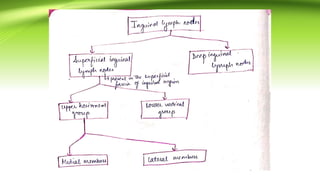 Inguinal lymph nodes
Superficial inguinal
lymph nodes
Deep inguinal
lymph nodes
present in the superficial
fascia of inguinal region
Upper horizontal
group
Lower vertical
group
Medial members
Lateral members